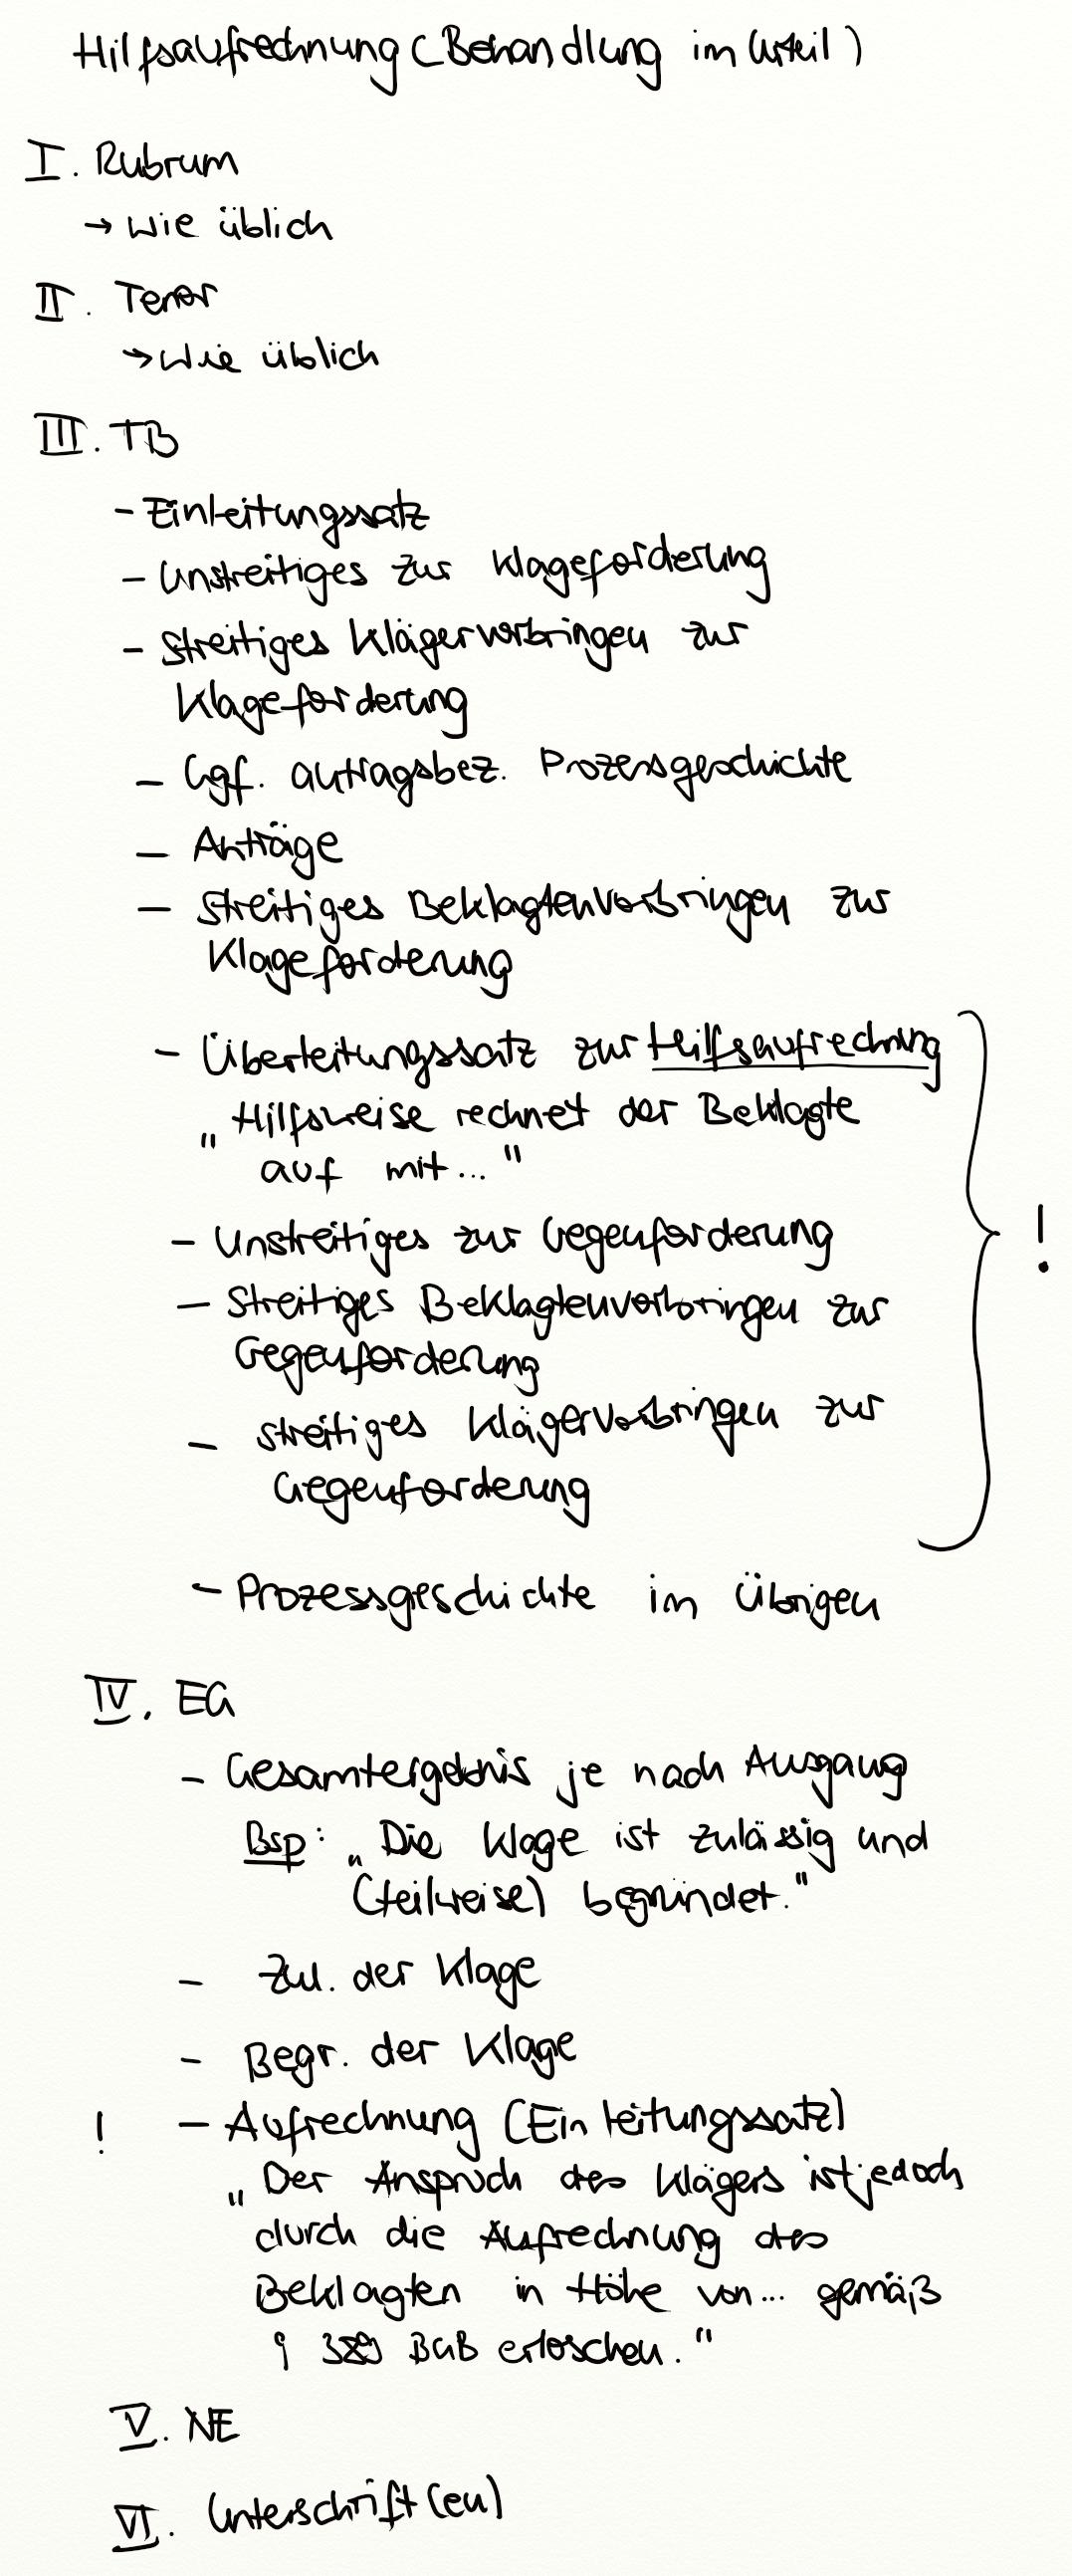 Hilfsaufrechnung (Behandlung im Urteil)
I. Rubrum
→ wie üblich
II. Tenor
→ wie üblich
III. TB
- Einleitungssatz
- Unstreitiges zur Klageforderung
- Streitiges Klägervorbringen zur
Klageforderung
- Ggf. antragsbez. Prozessgeschichte
- Anträge
- Streitiges Beklagtenvorbringen zur
Klageforderung
- Überleitungssatz zur Hilfsaufrechnung
"Hilfsweise rechnet der Beklagte
auf mit..."
- Unstreitiges zur Gegenforderung
!
- Streitiges Beklagtenvorbringen zur
Gegenforderung
- streitiges Klägervorbringen zur
Gegenforderung
- Prozessgeschichte im Übrigen
IV. EG
- Gesamtergebnis je nach Ausgang
Bsp: „Die Klage ist zulässig und
(teilweise) begründet."
- Zul. der Klage
- Begr. der Klage
! - Aufrechnung (Einleitungssatz)
„Der Anspruch des Klägers ist jedoch
durch die Aufrechnung des
Beklagten in Höhe von... gemäß
§ 389 BGB erloschen."
V. NE
VI. Unterschrift(en)